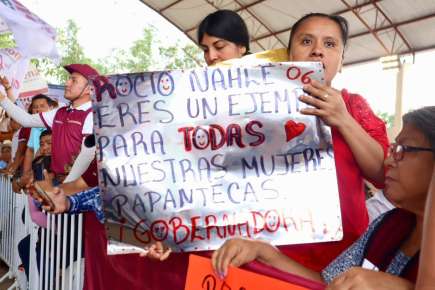 ROCIO NAHLE 06
ERES UN EJEM
PARA TODAS
NUESTRAS MUJERES
PAPANTECAS.
¡GOBERNADORA!